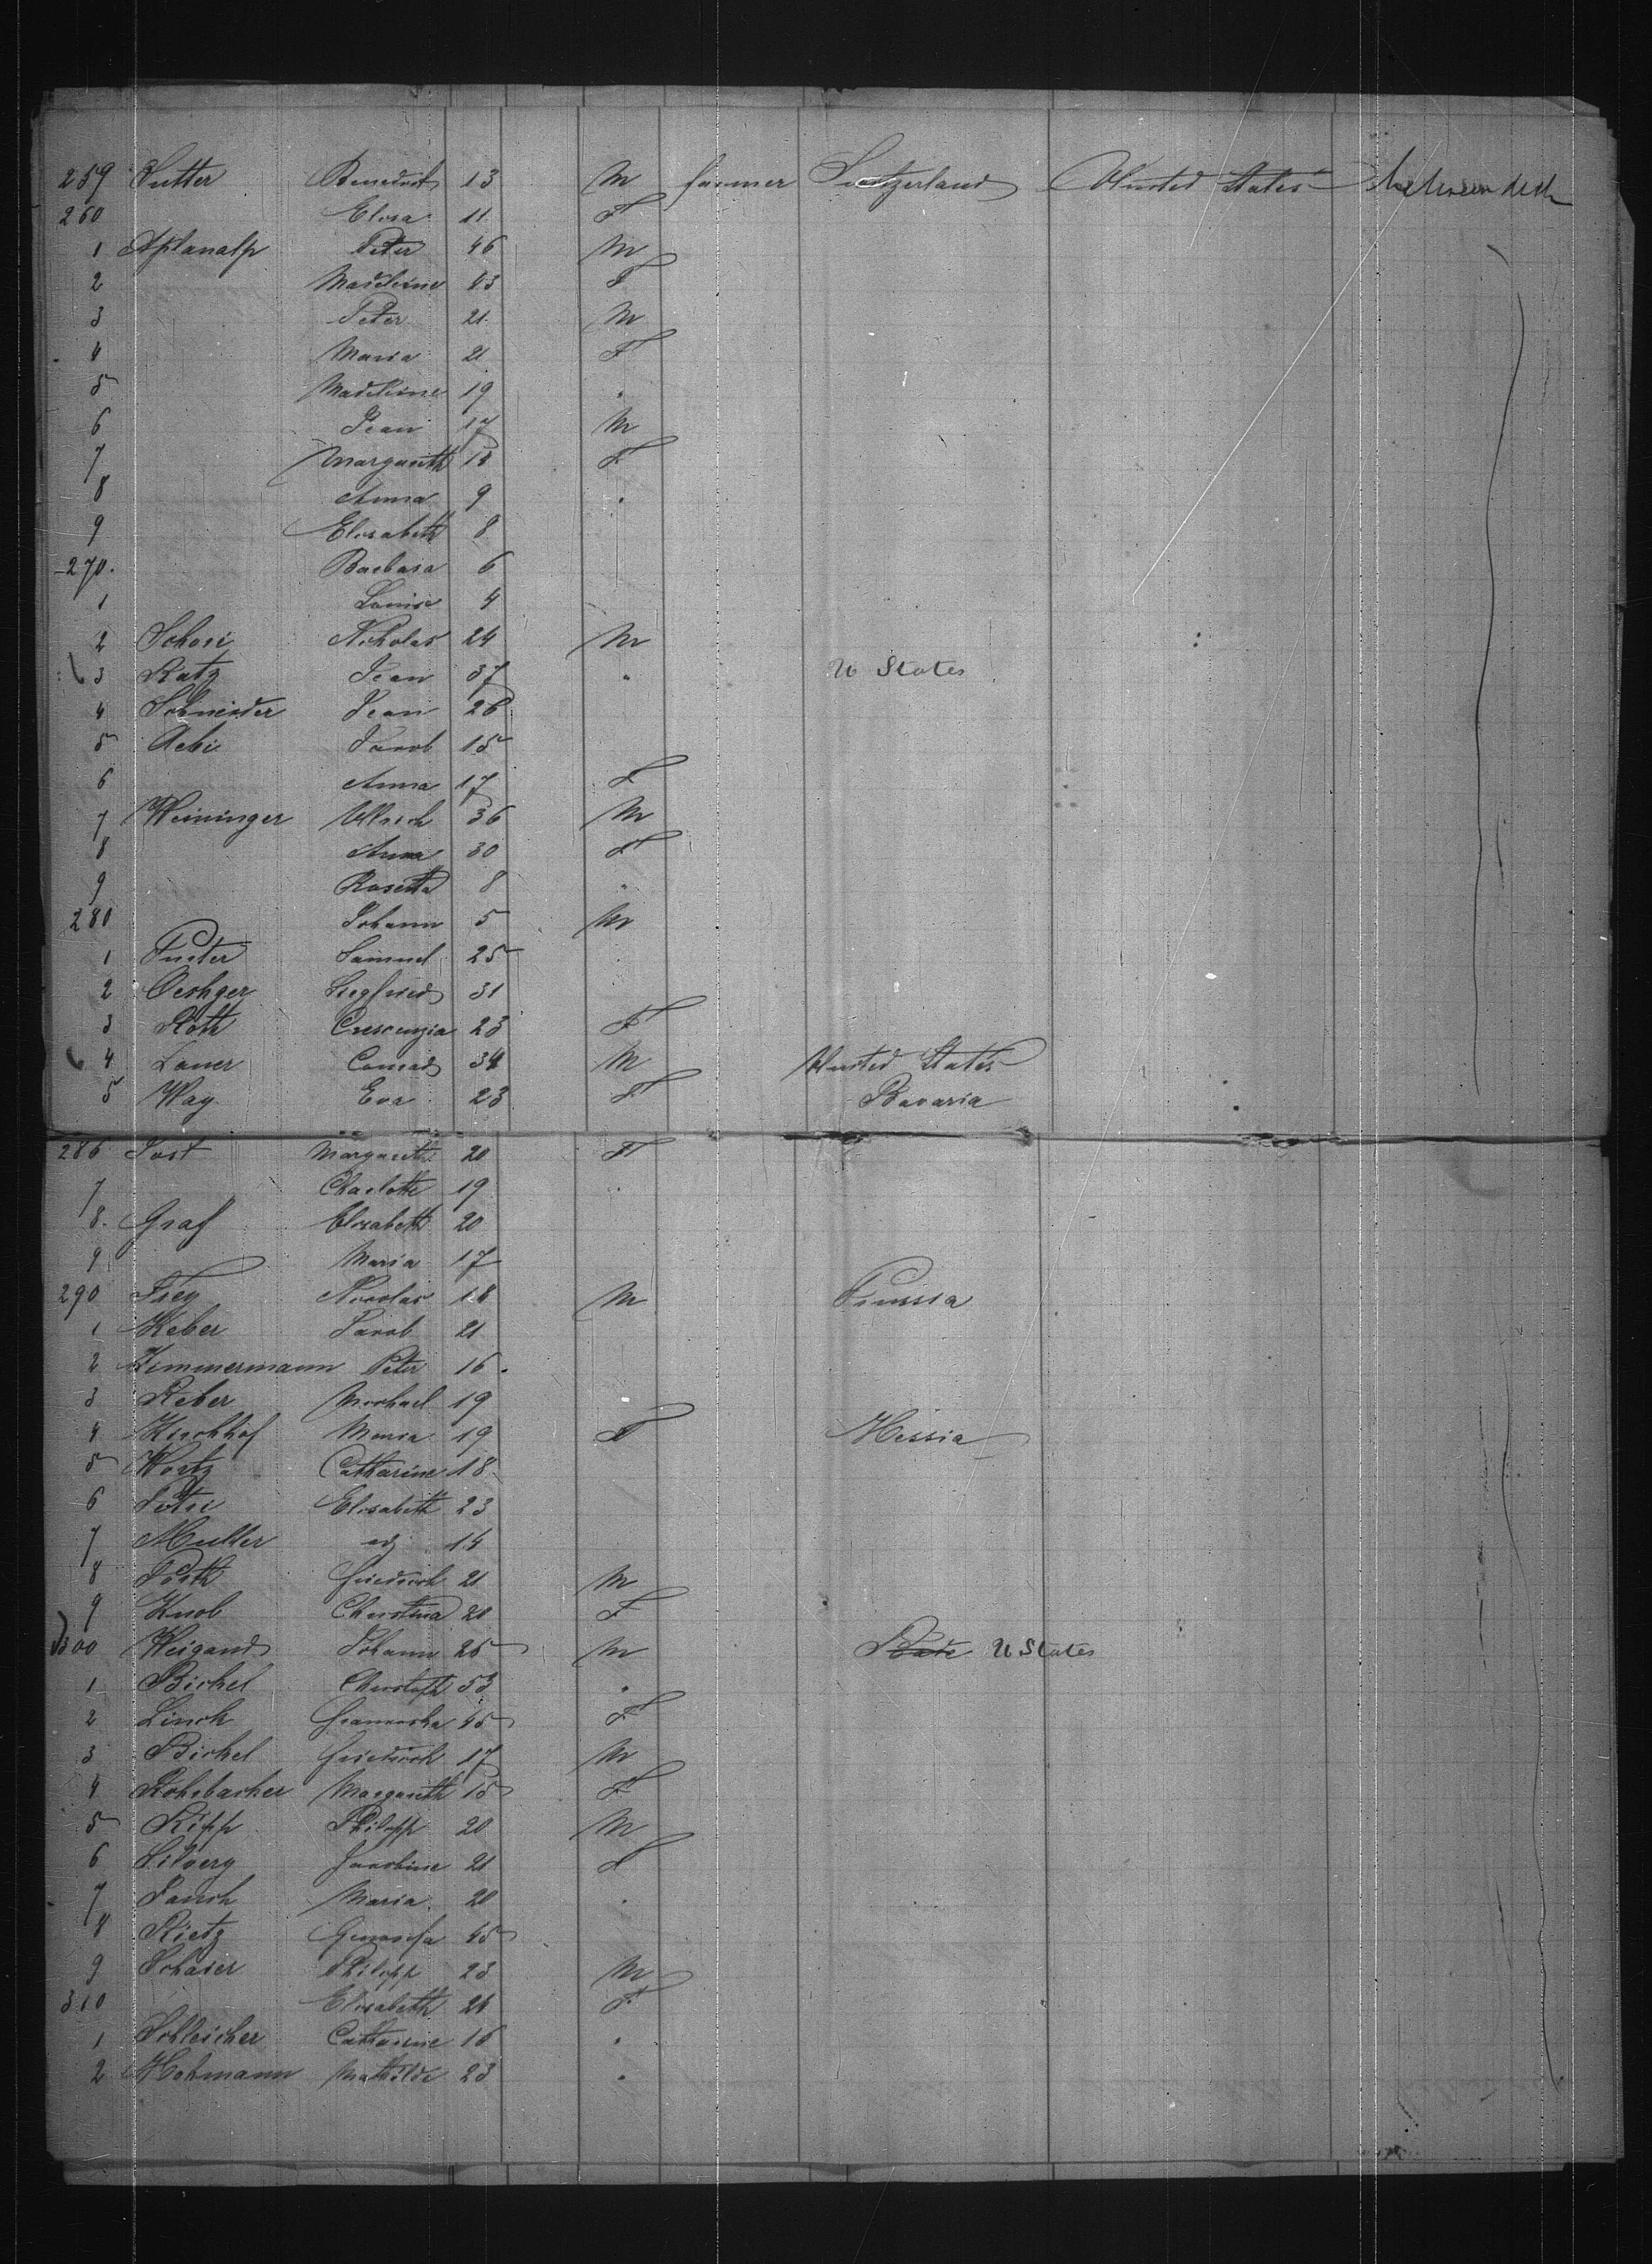 259 Sutter Benedict 13 M farmer Switzerland United States between deck
260 Elisa 11 F
1 Aplanalp Peter 46 M
2 Madeleine 43 F
3 Peter 21 M
4 Maria 21 F
5 Madeleine 19 "
6 Jean 17 M
7 Margareth F
8 Anna 9 "
9 Elisabeth 8
270. Barbara 6
1 Louise 4
2 Schori Nicholas 24 M
3 Katz Jean 37 " U States
4 Schneider Jean 26
5 Aebi Jacob 15
6 Anna 17 F
7 Weininger Ulrich 36 M
8 Anna 30 F
9 Rosetta 8 "
280 Johann 5 M
1 Furter Samuel 25
2 Oeshger Siegfried 31
3 Roth Crescenzia 23 F
4 Lauer Conrad 34 M United States
5 Way Eva 23 F Bavaria
286 Jost Margareth 20 F
7 Charlotte 19
8. Graf Elisabeth 20
9 Maria 17
290 Frey Nicolas 18 M Prussia
1 Weber Jacob 21
2 Zimmermann Peter 16
3 Reber Michael 19
4 Kirchhof Maria 19 F Hessia
5 Wortz Catharine 18
6 Elisabeth 23
7 Muller id 14
8 Friedrich 21 M
9 Knob Christina 20 F
300 Weigand Johann 25 M U States
1 Bickel Christoph 53 "
2 Linck Franziska 45 F
3 Bickel Friedrich 17 M
4 Rohrbacher Margareth 15 F
5 Kipp Philipp 20 M
6 Jacobine 21 F
7 Maria 20 "
8 Rietz Genovefa 45
9 Schäfer Philipp 23 M
310 Elisabeth 24 F
1 Schleicher Catharine 16 "
2 Hohmann Mathilde 23 "